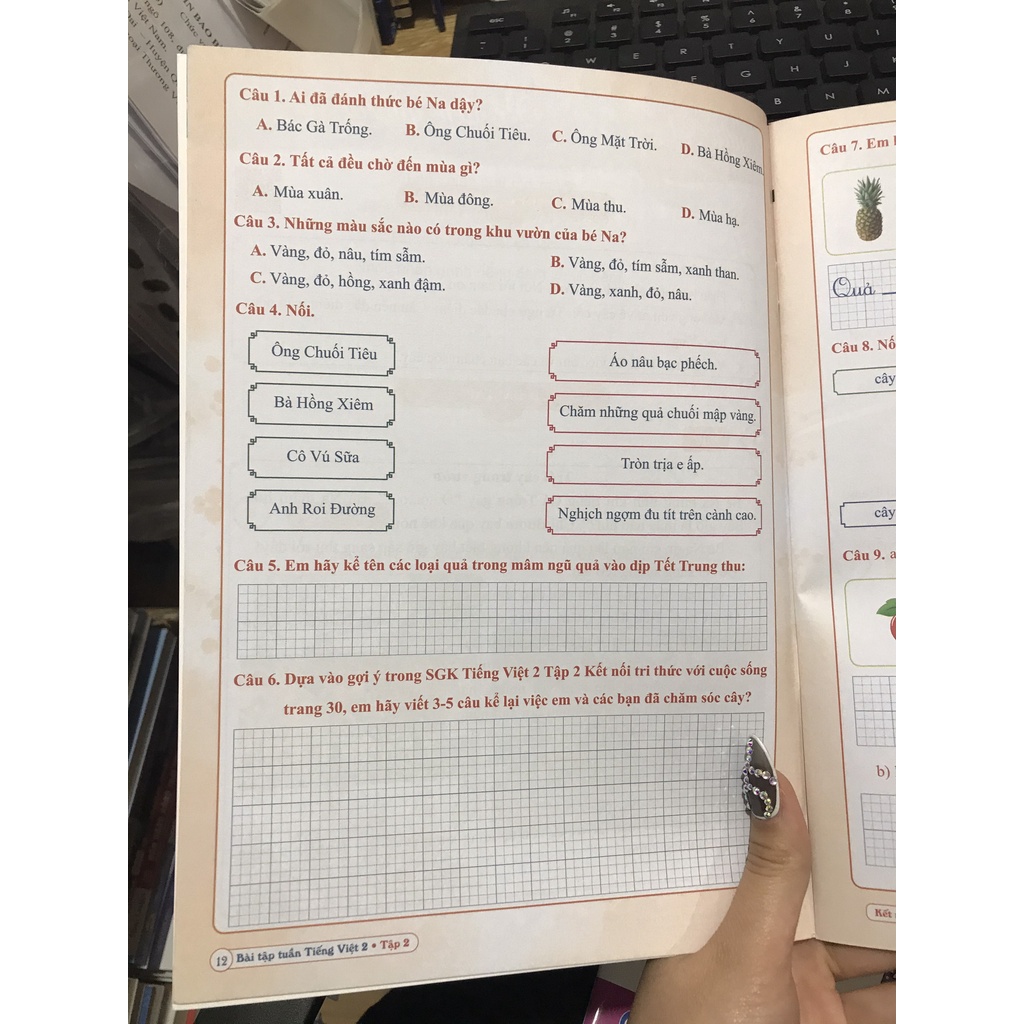 Câu 1. Ai đã đánh thức bé Na dậy?
A. Bác Gà Trống. B. Ông Chuối Tiêu. C. Ông Mặt Trời. D. Bà Hồng Xiêm.
Câu 2. Tất cả đều chờ đến mùa gì?
A. Mùa xuân. B. Mùa đông. C. Mùa thu. D. Mùa hạ.
Câu 3. Những màu sắc nào có trong khu vườn của bé Na?
A. Vàng, đỏ, nâu, tím sẫm. B. Vàng, đỏ, tím sẫm, xanh than.
C. Vàng, đỏ, hồng, xanh đậm. D. Vàng, xanh, đỏ, nâu.
Câu 4. Nối.
Ông Chuối Tiêu Áo nâu bạc phếch.
Bà Hồng Xiêm Chăm những quả chuối mập vàng.
Cô Vú Sữa Tròn trịa e ấp.
Anh Roi Đường Nghịch ngợm đu tít trên cành cao.
Câu 5. Em hãy kể tên các loại quả trong mâm ngũ quả vào dịp Tết Trung thu:
Câu 6. Dựa vào gợi ý trong SGK Tiếng Việt 2 Tập 2 Kết nối tri thức với cuộc sống
trang 30, em hãy viết 3-5 câu kể lại việc em và các bạn đã chăm sóc cây?
12 Bài tập tuần Tiếng Việt 2 • Tập 2
Câu 7. Em
Quả
Câu 8.
cây
cây
Câu 9. a
b)
Kết